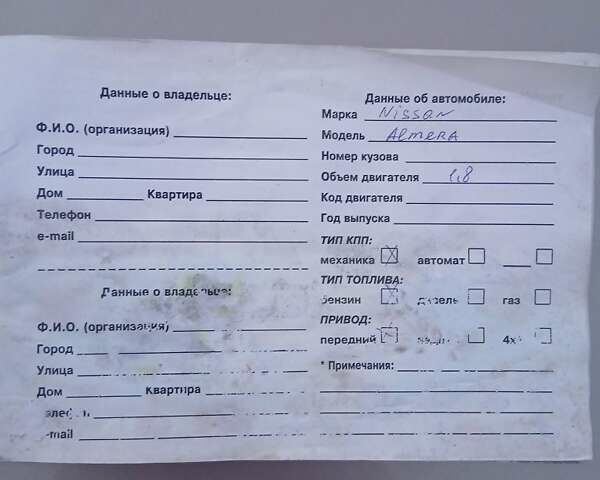 Данные о владельце:
Ф.И.О. (организация)
Город
Улица
Дом Квартира
Телефон
e-mail
Данные о владельце:
Ф.И.О. (организация)
Город
Улица
Дом Квартира
e-mail
Данные об автомобиле:
Марка Nissan
Модель Almera
Номер кузова
Объем двигателя 1,8
Код двигателя
Год выпуска
ТИП КПП:
механика автомат
ТИП ТОПЛИВА:
бензин дизель газ
ПРИВОД:
передний
* Примечания: